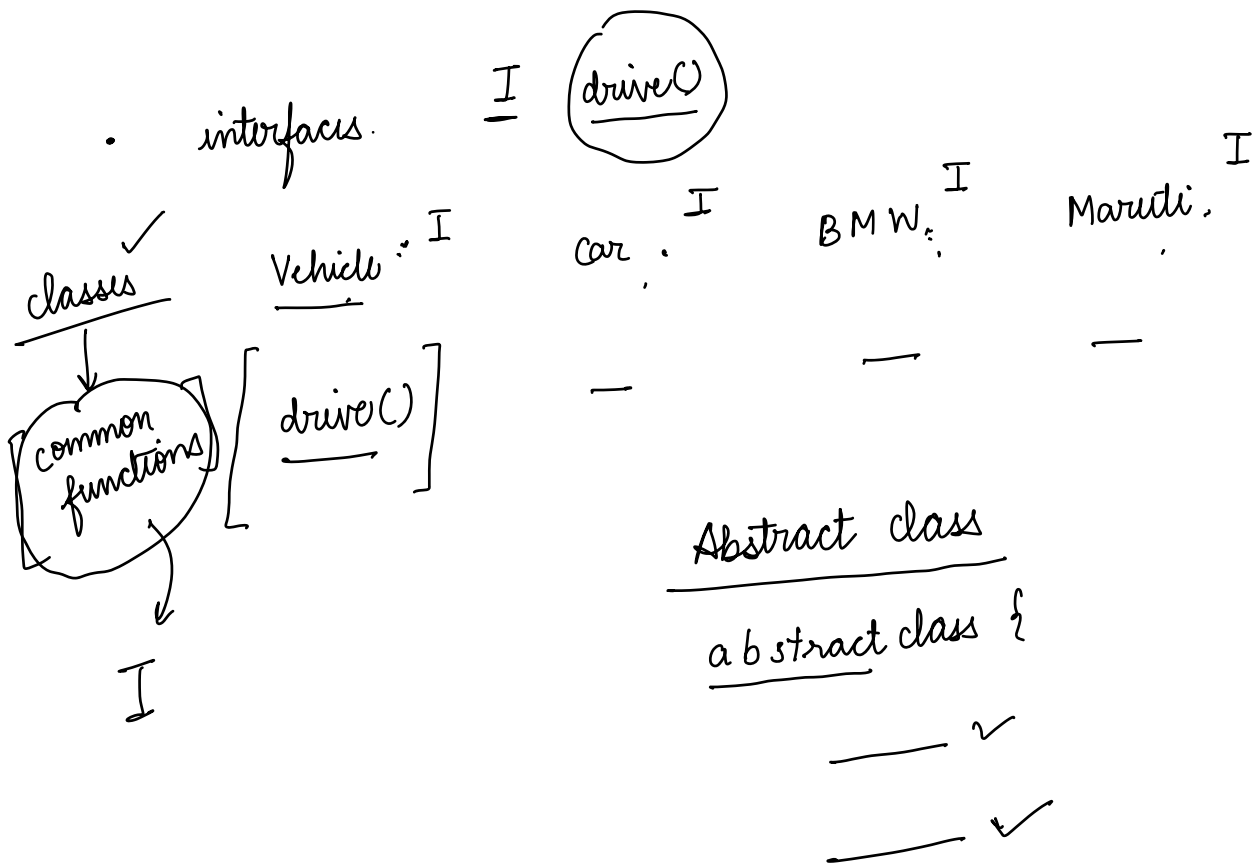 I drive()
• interfaces.
I I I
classes ✓ Vehicle I Car BMW Maruti
common
functions
drive()
I
Abstract class
abstract class {
✓
✓